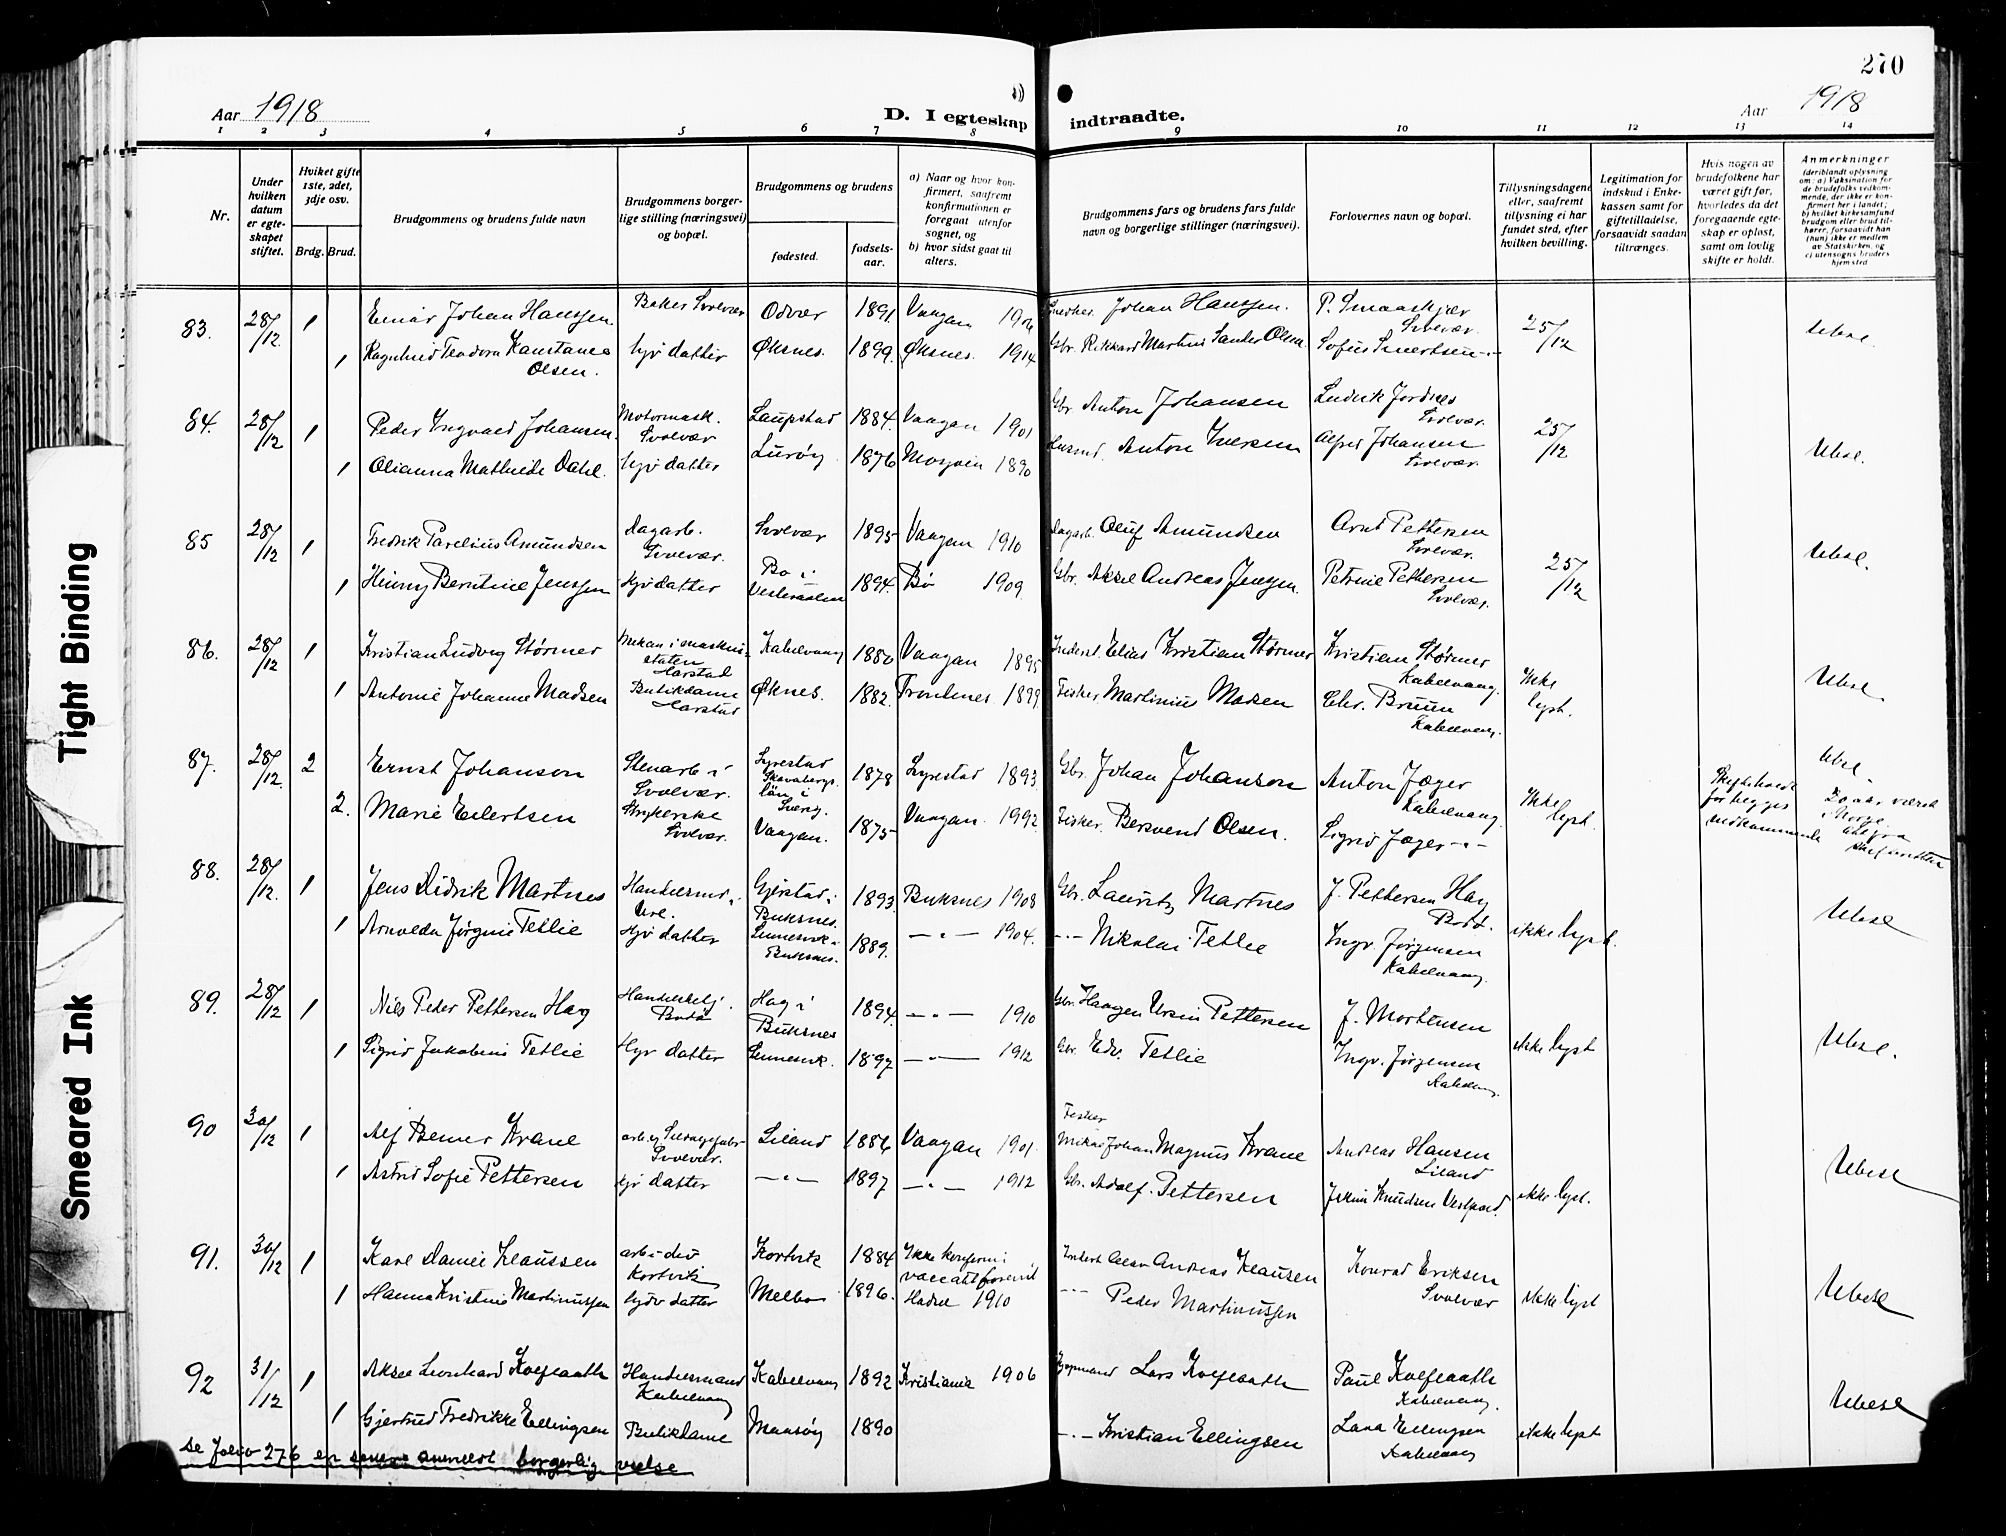 270
Aar 1918
D. I egteskap indtraadte.
Aar 1918
1 2 3 4 5 6 7 8 9 10 11 12 13 14
Nr.
Under hvilken datum er egteskapet stiftet.
Hvilket gifte 1ste, 2det, 3dje osv.
Brdg. Brud.
Brudgommens og brudens fulde navn
Brudgommens borgerlige stilling (næringsvei) og bopæl.
Brudgommens og brudens
fødested.
fødselsaar.
a) Naar og hvor konfirmert, saafremt konfirmationen er foregaat utenfor sognet, og
b) hvor sidst gaat til alters.
Brudgommens fars og brudens fars fulde navn og borgerlige stillinger (næringsvei).
Forlovernes navn og bopæl.
Tillysningsdagene eller, saafremt tillysning ei har fundet sted, efter hvilken bevilling.
Legitimation for indskud i Enkekassen samt for giftetilladelse, forsaavidt saadan tiltrænges.
Hvis nogen av brudefolkene har været gift før, hvorledes da det foregaaende egteskap er opløst, samt om lovlig skifte er holdt.
Anmerkninger (deriblandt oplysning om: a) Vaksination for de brudefolks vedkommende, der ikke er konfirmert her i landet; b) hvilket kirkesamfund brudgom eller brud tilhører, forsaavidt han (hun) ikke er medlem av Statskirken, og c) utensogns bruders hjemsted
83. 28/12. 1 Einar Johan Hanssen. Baker Svolvær Odvær 1891. Vaagan 1906 Johan Hanssen. P. Smaaskjær Svolvær. 25/12
1 Ragnhild Teodora Konstance Olsen. hjv datter Øksnes. 1899. Øksnes. 1914 Gbr. Rikkard Martin Sander Olsen.
84. 28/12 1 Peder Ingvald Johansen. Motormask. Svolvær Laupstad 1884. Vaagan 1901 Gbr. Anton Johansen Ludvik Jordnes Svolvær. 25/12
1 Olianna Mathilde Dahl. hjv datter Lurøy 1876 1890 Anton Iversen Alfred Johansen Svolvær.
85 28/12 1 Fredrik Parelius Amundsen Dagarb. Svolvær. Svolvær 1895 Vaagan 1910 Dagarb. Oluf Amundsen Arnt Pettersen Svolvær. 25/12
1 Hinny Berntine Jenssen hjv datter Bø i Vesteraalen 1894. Bø 1909. Gbr. Aksel Andreas Jenssen. Petrine Pettersen Svolvær.
86. 28/12 1 Kristian Ludvig Størmer Harstad Kabelvaag 1880 Vaagan 1895 Elias Kristian Størmer Kristian Størmer Kabelvaag. Ikke lyst.
1 Antonie Johanne Madsen Butikdame Harstad Øksnes. 1882. Trondenes 1899. Fisker. Martinius Madsen Chr. Bruun Kabelvaag.
87. 28/12. 2 Ernst Johanson Stenarb i Svolvær. Lyrestad Skaraborgs län i Sverig. 1878 Lyrestad 1893. Gbr. Johan Johanson Anton Jæger Kabelvaag. Ikke lyst.
2. Marie Eilertsen Strykerske Svolvær. Vaagan. 1875 Vaagan. 1992 Fisker. Bernend Olsen. Sigrid Jæger - " -
for begges vedkommende
20 aar været i Norge.
88. 28/12. 1 Jens Didrik Martnes Gjerstad i Buksnes. 1893. Buksnes 1908 Gbr. Lauritz Martnes J. Pettersen Hag Bodø. ikke lyst.
1 Arnolda Jørgine Tetlie hjv datter Sennesvik i Buksnes. 1889. - " - 1904. - " - Nikolai Tetlie Ingv. Jørgensen Kabelvaag.
89. 28/12 1 Nils Peder Pettersen Hag Bodø Hag i Buksnes 1894. - " - 1910 Gbr. Haagen Ursin Pettersen J. Mortensen ikke lyst
1 Sigrid Jakobine Tetlie Hjv datter Sennesvik. 1897 - " - 1912 Gbr. Edv. Tetlie Ingv. Jørgensen Kabelvaag.
90 30/12 1 Alf Berner Krane Svolvær. Liland 1886 Vaagan 1901. Fisker Mikal Johan Magnus Krane Andreas Hansen Liland ikke lyst.
1 Astrid Sofie Pettersen hjv datter - " - 1897 - " - 1912 Gbr. Adolf. Pettersen Knudsen
91. 30/12 1 Karl Daniel Klaussen Kortvik Kortvik 1884 Ikke konferm i Andreas Klausen Konrad Eriksen Svolvær ikke lyst
1 Hanna Kristine Martinussen hjv datter Melbo 1896. Hadsel 1910 - " - Peder Martinussen
92 31/12 1 Aksel Leonhard Kolflaath Handelsmand Kabelvaag Kabelvaag 1892 Kristiania 1906 Lars Kolflaath Paul Kolflaath Kabelvaag. ikke lyst
1 Gjertrud Fredrikke Ellingsen Butikdame Maasøy 1890 - " - Kristian Ellingsen Lara Ellingsen Kabelvaag
Se folio 276 en senere anmeldt borgerlig vielse
Tight Binding
Smeared Ink